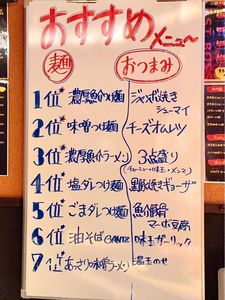 おすすめメニュー
麺 おつまみ
1位 濃厚魚介つけ麺 ジャンボ焼きシューマイ
2位 味噌つけ麺 チーズオムレツ
3位 濃厚魚介ラーメン 3点盛り
(チャーシュー・味玉・メンマ)
4位 塩ダレつけ麺 黒豚焼きギョーザ
5位 ごまダレつけ麺 魚介節骨
マーボ豆腐
6位 油そば 味玉ガーリック
7位 あっさり味噌ラーメン のせ